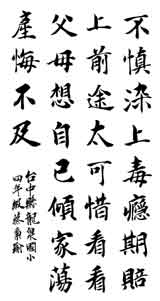 不慎染上毒癮期賠
上前途太可惜看看
父母想自己傾家蕩
產悔不及
台中縣龍泉國小
四年級蔡